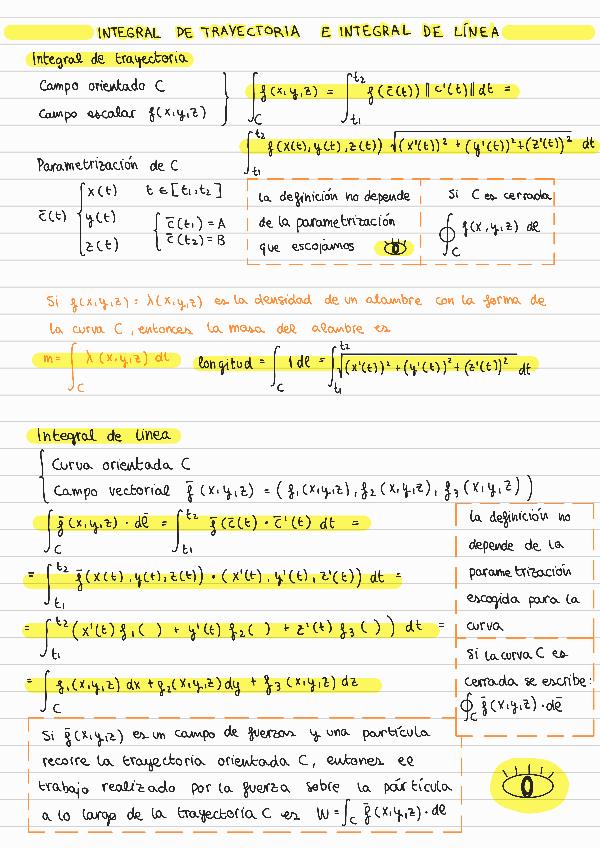 INTEGRAL DE TRAYECTORIA E INTEGRAL DE LÍNEA
Integral de trayectoria
Campo orientado C
Campo escalar f(x,y,z)
∫_C f(x,y,z) = ∫_{t1}^{t2} f(c̄(t)) ‖c'(t)‖ dt =
∫_{t1}^{t2} f(x(t),y(t),z(t)) √((x'(t))² + (y'(t))² + (z'(t))²) dt
Parametrización de C
c̄(t) { x(t) t ∈ [t1,t2]
y(t) { c̄(t1) = A
z(t) c̄(t2) = B
la definición no depende
de la parametrización
que escojamos
Si C es cerrada
∮_C f(x,y,z) dl
Si f(x,y,z) = λ(x,y,z) es la densidad de un alambre con la forma de
la curva C, entonces la masa del alambre es
m = ∫_C λ(x,y,z) dl longitud = ∫_C 1 dl = ∫_{t1}^{t2} √((x'(t))² + (y'(t))² + (z'(t))²) dt
Integral de línea
Curva orientada C
Campo vectorial f̄(x,y,z) = (f1(x,y,z), f2(x,y,z), f3(x,y,z))
∫_C f̄(x,y,z) · dl̄ = ∫_{t1}^{t2} f̄(c̄(t) · c̄'(t) dt =
= ∫_{t1}^{t2} f̄(x(t), y(t), z(t)) · (x'(t), y'(t), z'(t)) dt =
= ∫_{t1}^{t2} (x'(t) f1( ) + y'(t) f2( ) + z'(t) f3( )) dt =
= ∫_C f1(x,y,z) dx + f2(x,y,z) dy + f3(x,y,z) dz
la definición no
depende de la
parametrización
escogida para la
curva
Si la curva C es
cerrada se escribe:
∮_C f̄(x,y,z) · dl̄
Si f̄(x,y,z) es un campo de fuerzas y una partícula
recorre la trayectoria orientada C, entones ee
trabajo realizado por la fuerza sobre la pártícula
a lo largo de la trayectoría C es W = ∫_C f̄(x,y,z) · dl̄